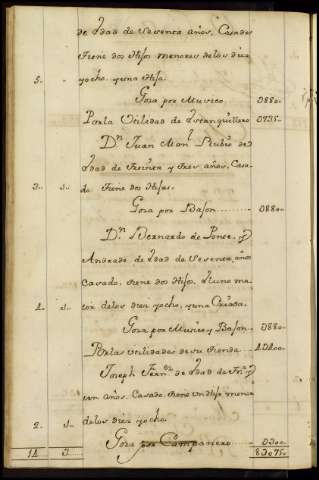 de Edad de Sesenta años, Casado
tiene dos Hijos menores de los diez
5.. .. yocho, y una Hija.
Goza por Musico 0880..
Por la Utilidad de Estanquillero 0735..
Dn. Juan Manl. Rubio de
Edad de Treinta y Tres años, Casa-
3.. 1.. do tiene dos Hijas.
Goza por Bajon 0880..
Dn. Bernardo de Ponce, y
Andrade de Edad de Sesenta años
Casado, tiene dos Hijos, el uno ma-
4.. 1.. yor de los diez yocho, y una Criada.
Goza por Musico y Bajon 0880..
Por las utilidades de su tienda
Joseph Fernz. de Edad de
años, Casado, tiene un Hijo menor
2.. 1.. de los diez yocho
Goza por Campanero 0300..
14 3